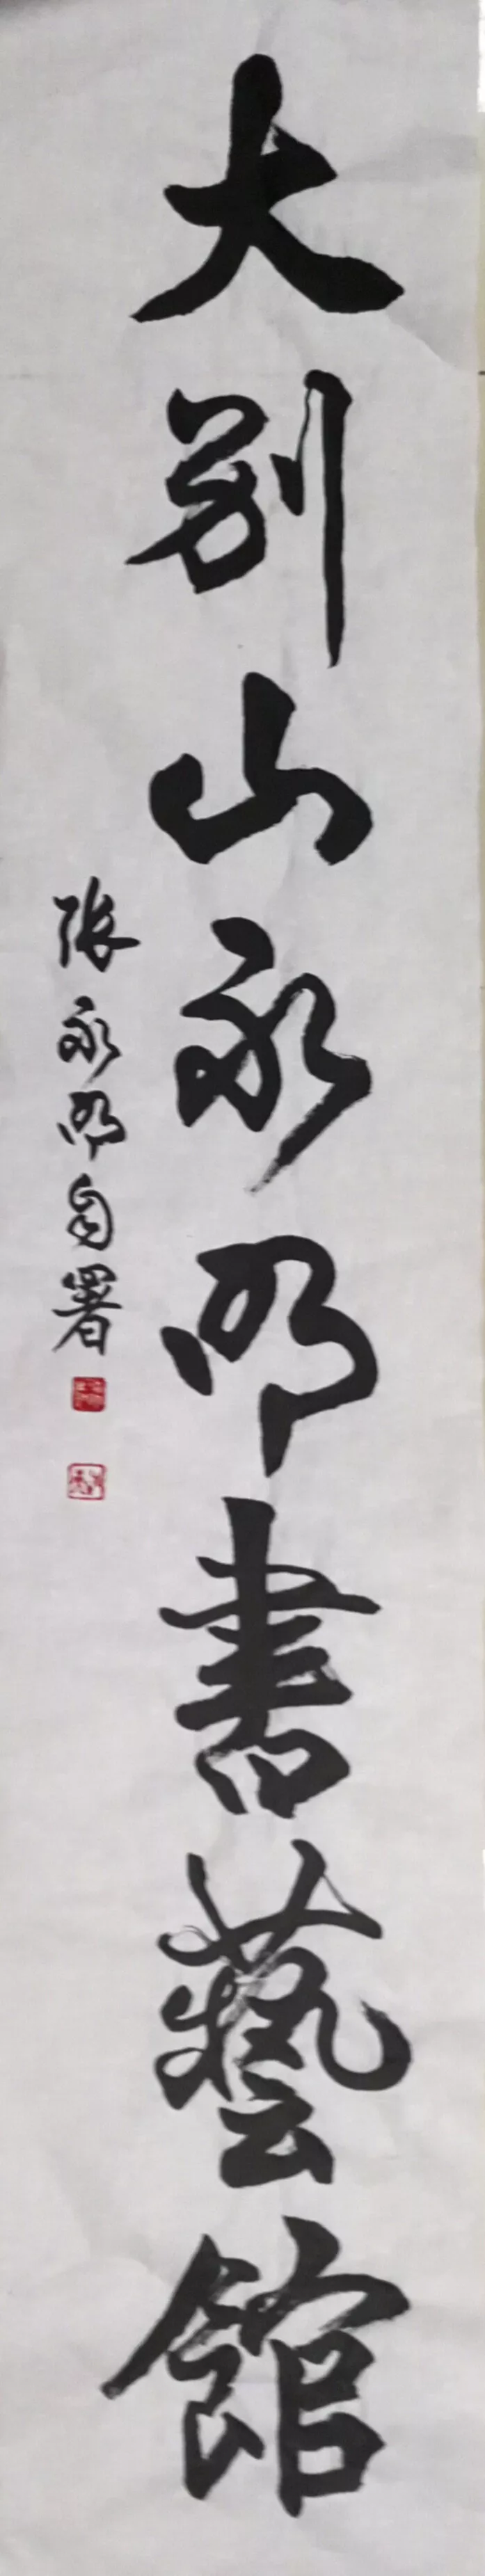 大别山永明書藝館
張永明自署